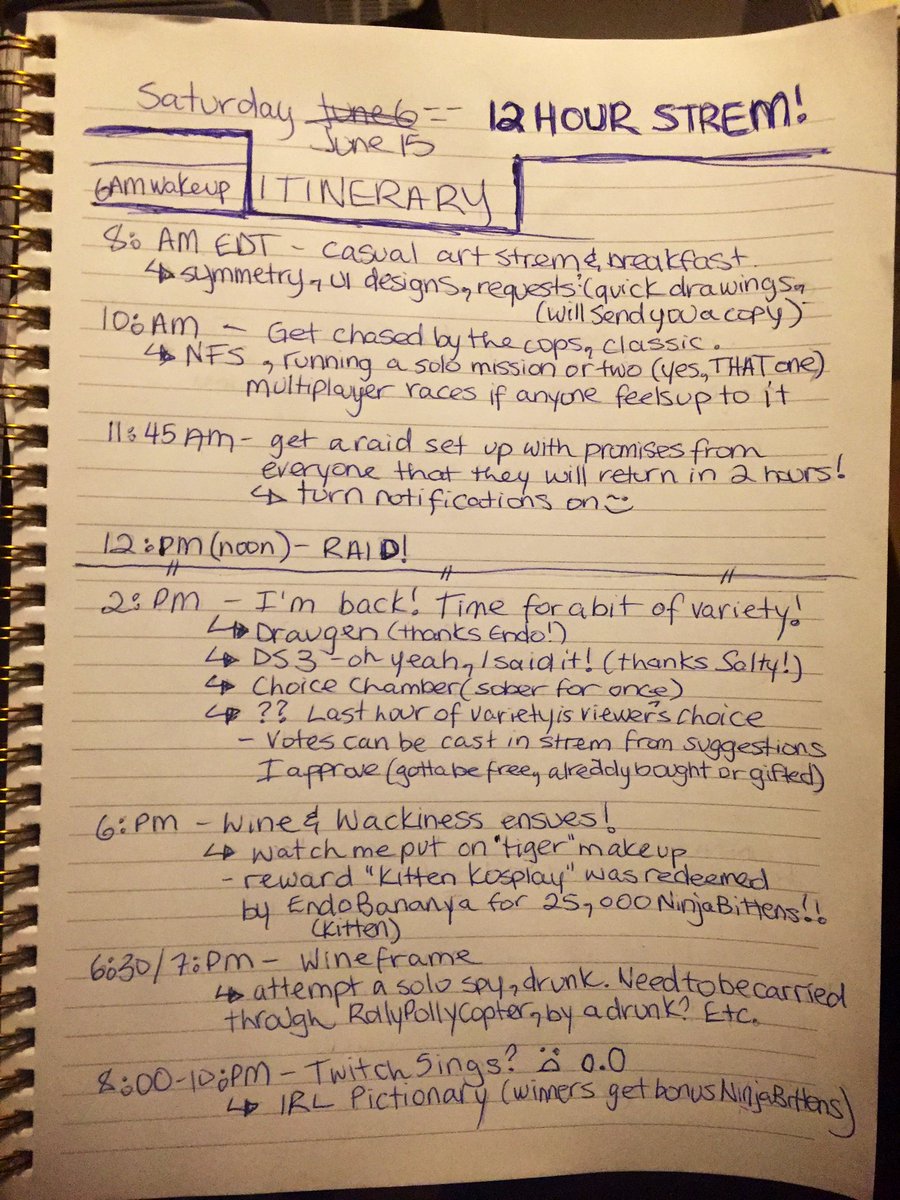 Saturday June 6 == 12 HOUR STREM!
June 15
6AM wakeup ITINERARY
8: AM EDT - casual art strem & breakfast.
↳ symmetry, UI designs, requests: (quick drawings,
(will send you a copy)
10: AM - Get chased by the cops, classic.
↳ NFS, running a solo mission or two (yes, THAT one)
multiplayer races if anyone feels up to it
11:45 AM - get a raid set up with promises from
everyone that they will return in 2 hours!
↳ turn notifications on :)
12: PM (noon) - RAID!
2: PM - I'm back! Time for a bit of variety!
↳ Draugen (thanks Endo!)
↳ DS 3 - oh yeah, I said it! (thanks Salty!)
↳ Choice Chamber (sober for once)
↳ ?? Last hour of variety is viewer's choice
- Votes can be cast in strem from suggestions
I approve (gotta be free, alreddy bought or gifted)
6: PM - Wine & Wackiness ensues!
↳ watch me put on "tiger" makeup
- reward "Kitten Kosplay" was redeemed
by EndoBananya for 25,000 NinjaBittens!!
(Kitten)
6:30/7: PM - Wineframe
↳ attempt a solo spy, drunk. Need to be carried
through RollyPollyCopter, by a drunk? Etc.
8:00-10: PM - Twitch Sings? :( O.O
↳ IRL Pictionary (winners get bonus NinjaBittens)